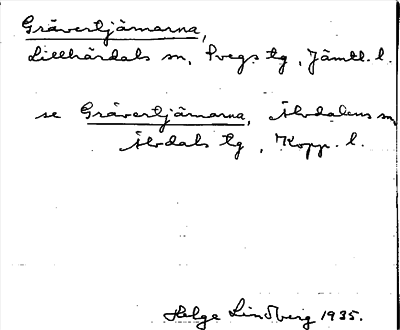 Grävertjärnarna,
Lillhärdals sn, Svegs tg, Jämtl. l.
se Grävertjärnarna, Älvdalens sn
Älvdals tg, Kopp. l.
Helge Lindberg 1935.